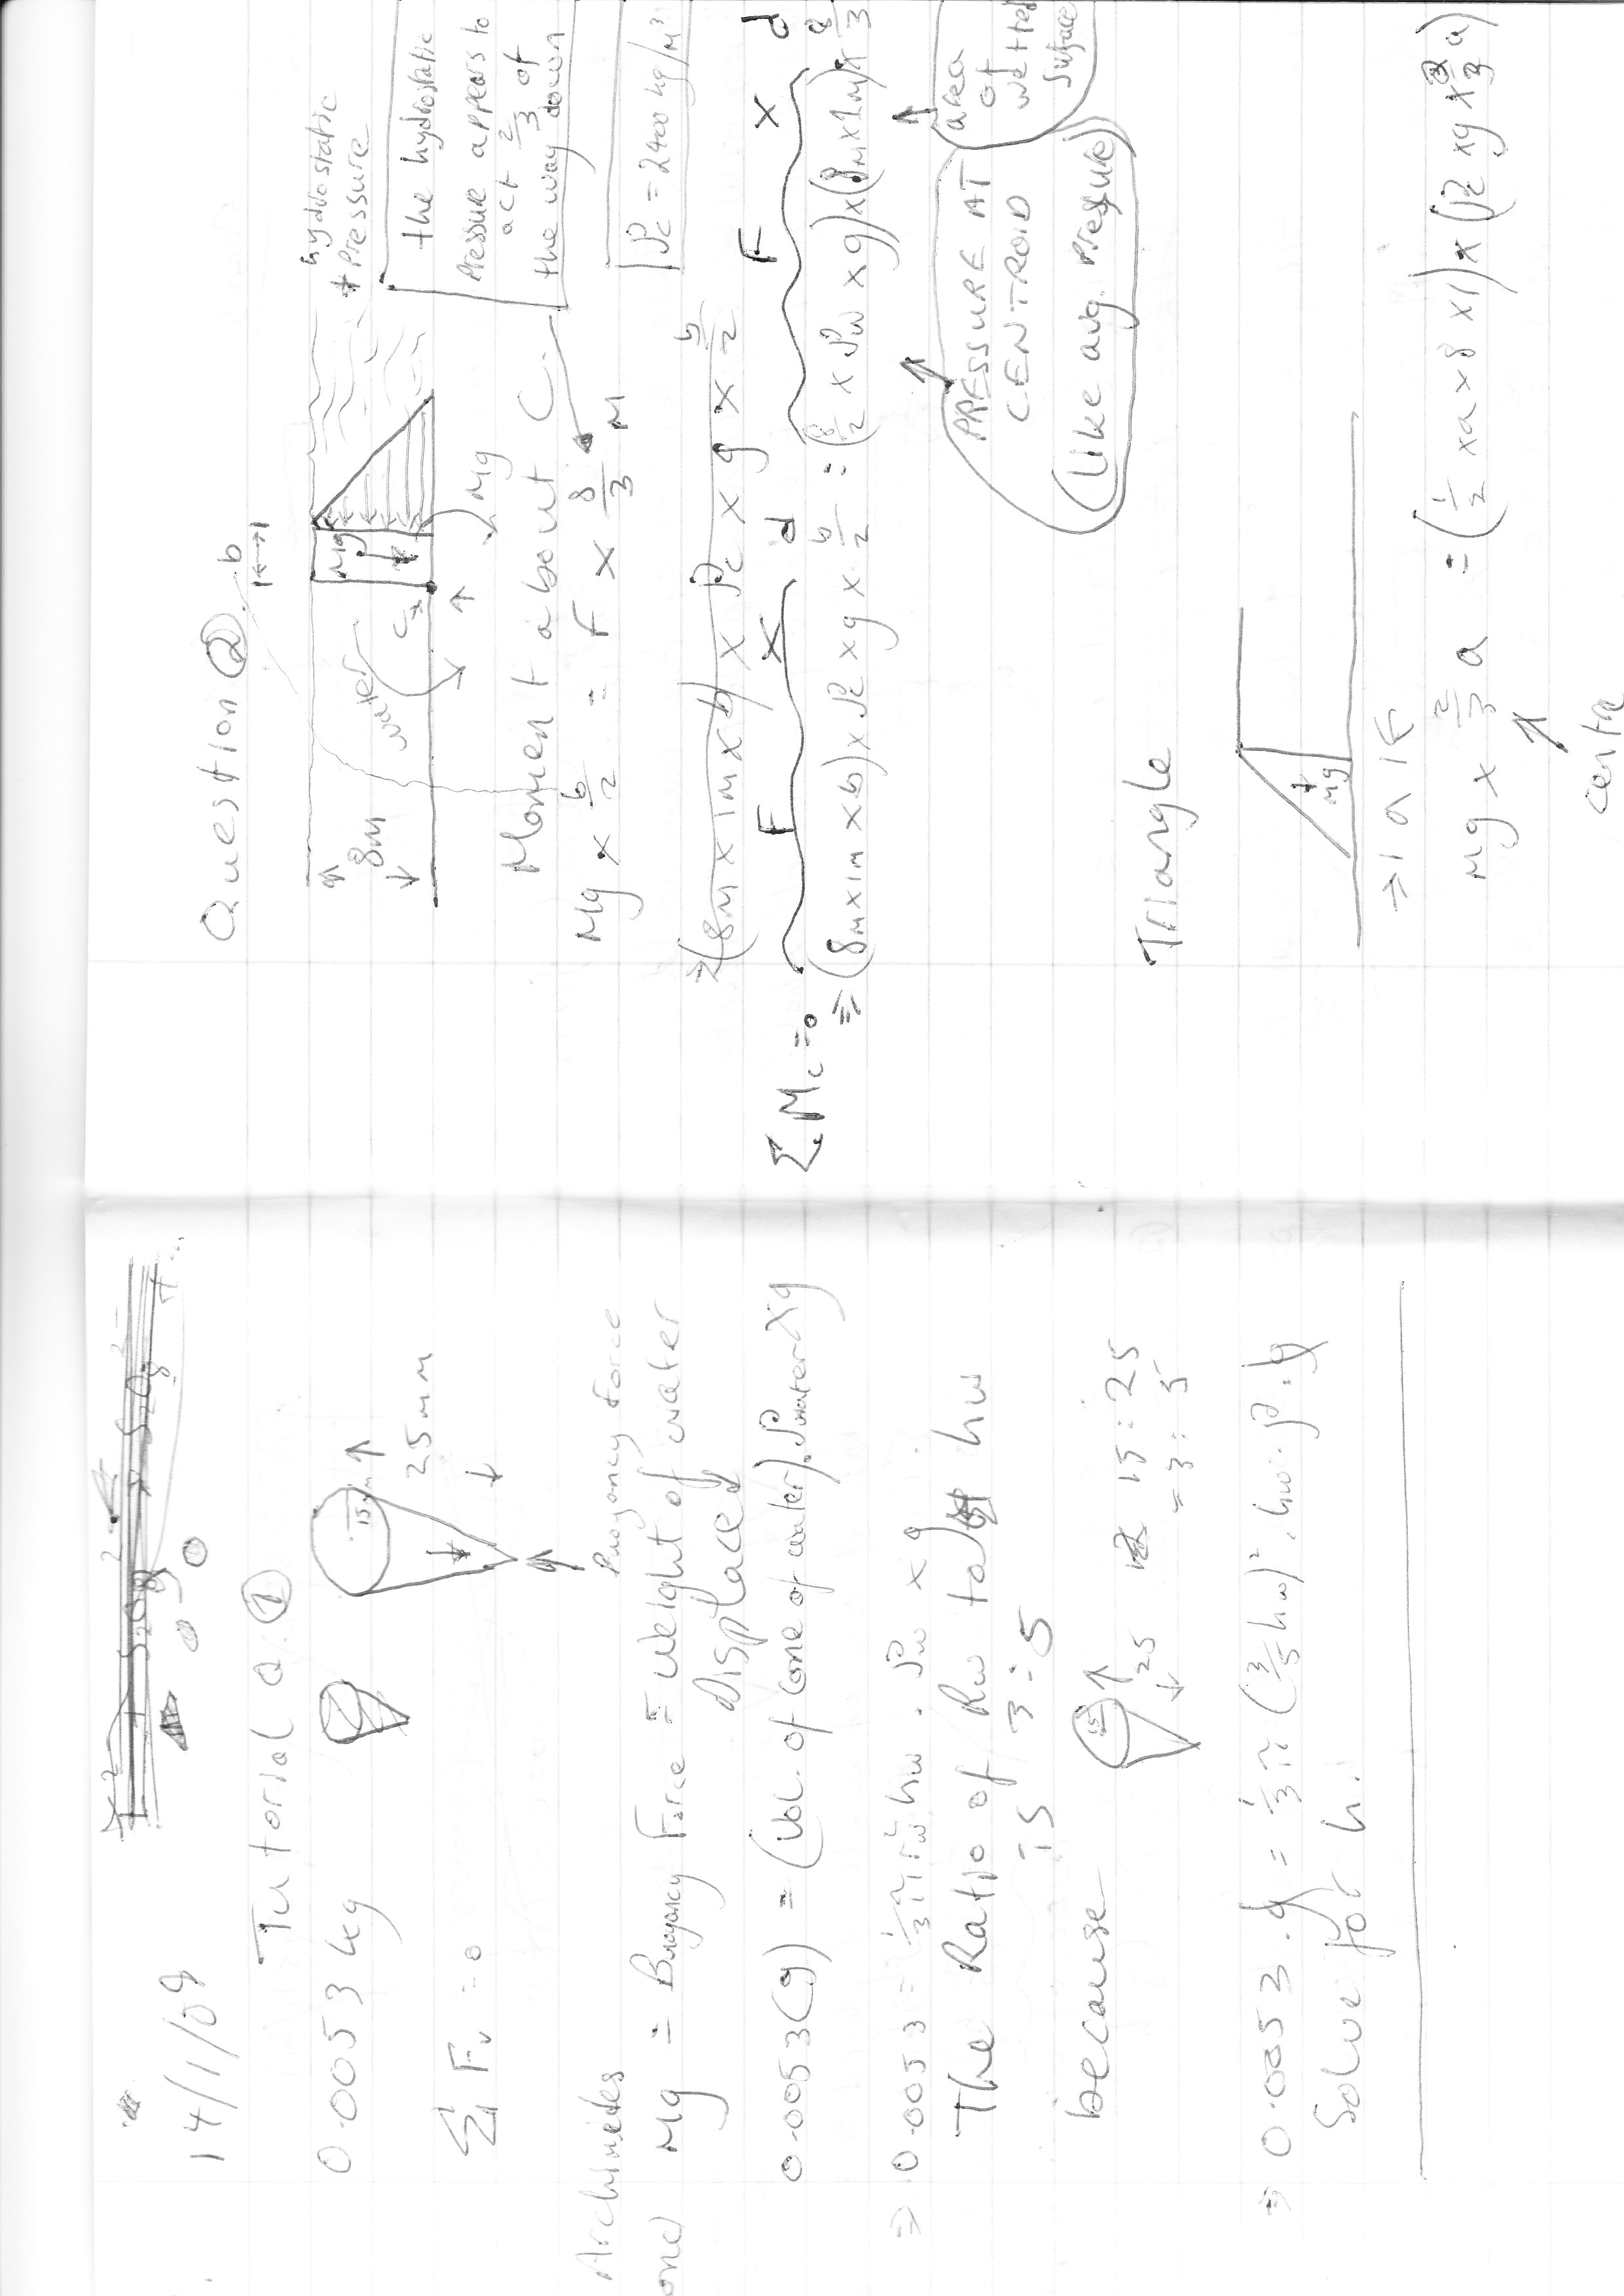 14/1/09
Tutorial Q.1
0.0053 kg
15mm
25mm
ΣFv = 0
Buoyancy Force
Archimedes
Mg = Buoyancy Force = weight of water
Displaced
0.0053(g) = (Vol. of Cone of water).ρwater xg
⇒ 0.0053 = 1/3 π rw² hw . ρw x g
The Ratio of Rw to hw
is 3:5
because
15
25
15:25
= 3:5
⇒ 0.0053.g = 1/3 π (3/5 hw)². hw. ρ. g
Solve for h.
Question 2
b
hydrostatic
Pressure
8m
water
Mg
C
Mg
the hydrostatic
Pressure appears to
act 2/3 of
the way down
Moment about C
Mg x b/2 = F x 8/3 M
ρc = 2400 kg/m³
⇒ (8m x 1m x b) x ρc x g x b/2
F x d F x d
ΣMc = 0
⇒ (8m x 1m x b) x ρc x g x b/2 = (8/2 x ρw x g) x (8m x 1m) x 8/3
PRESSURE AT
CENTROID
(like avg. pressure)
area
of
wetted
surface
Triangle
Mg
→ a ←
Mg x 2/3 a = (1/2 x a x 8 x 1) x (ρc x g x 2/3 a)